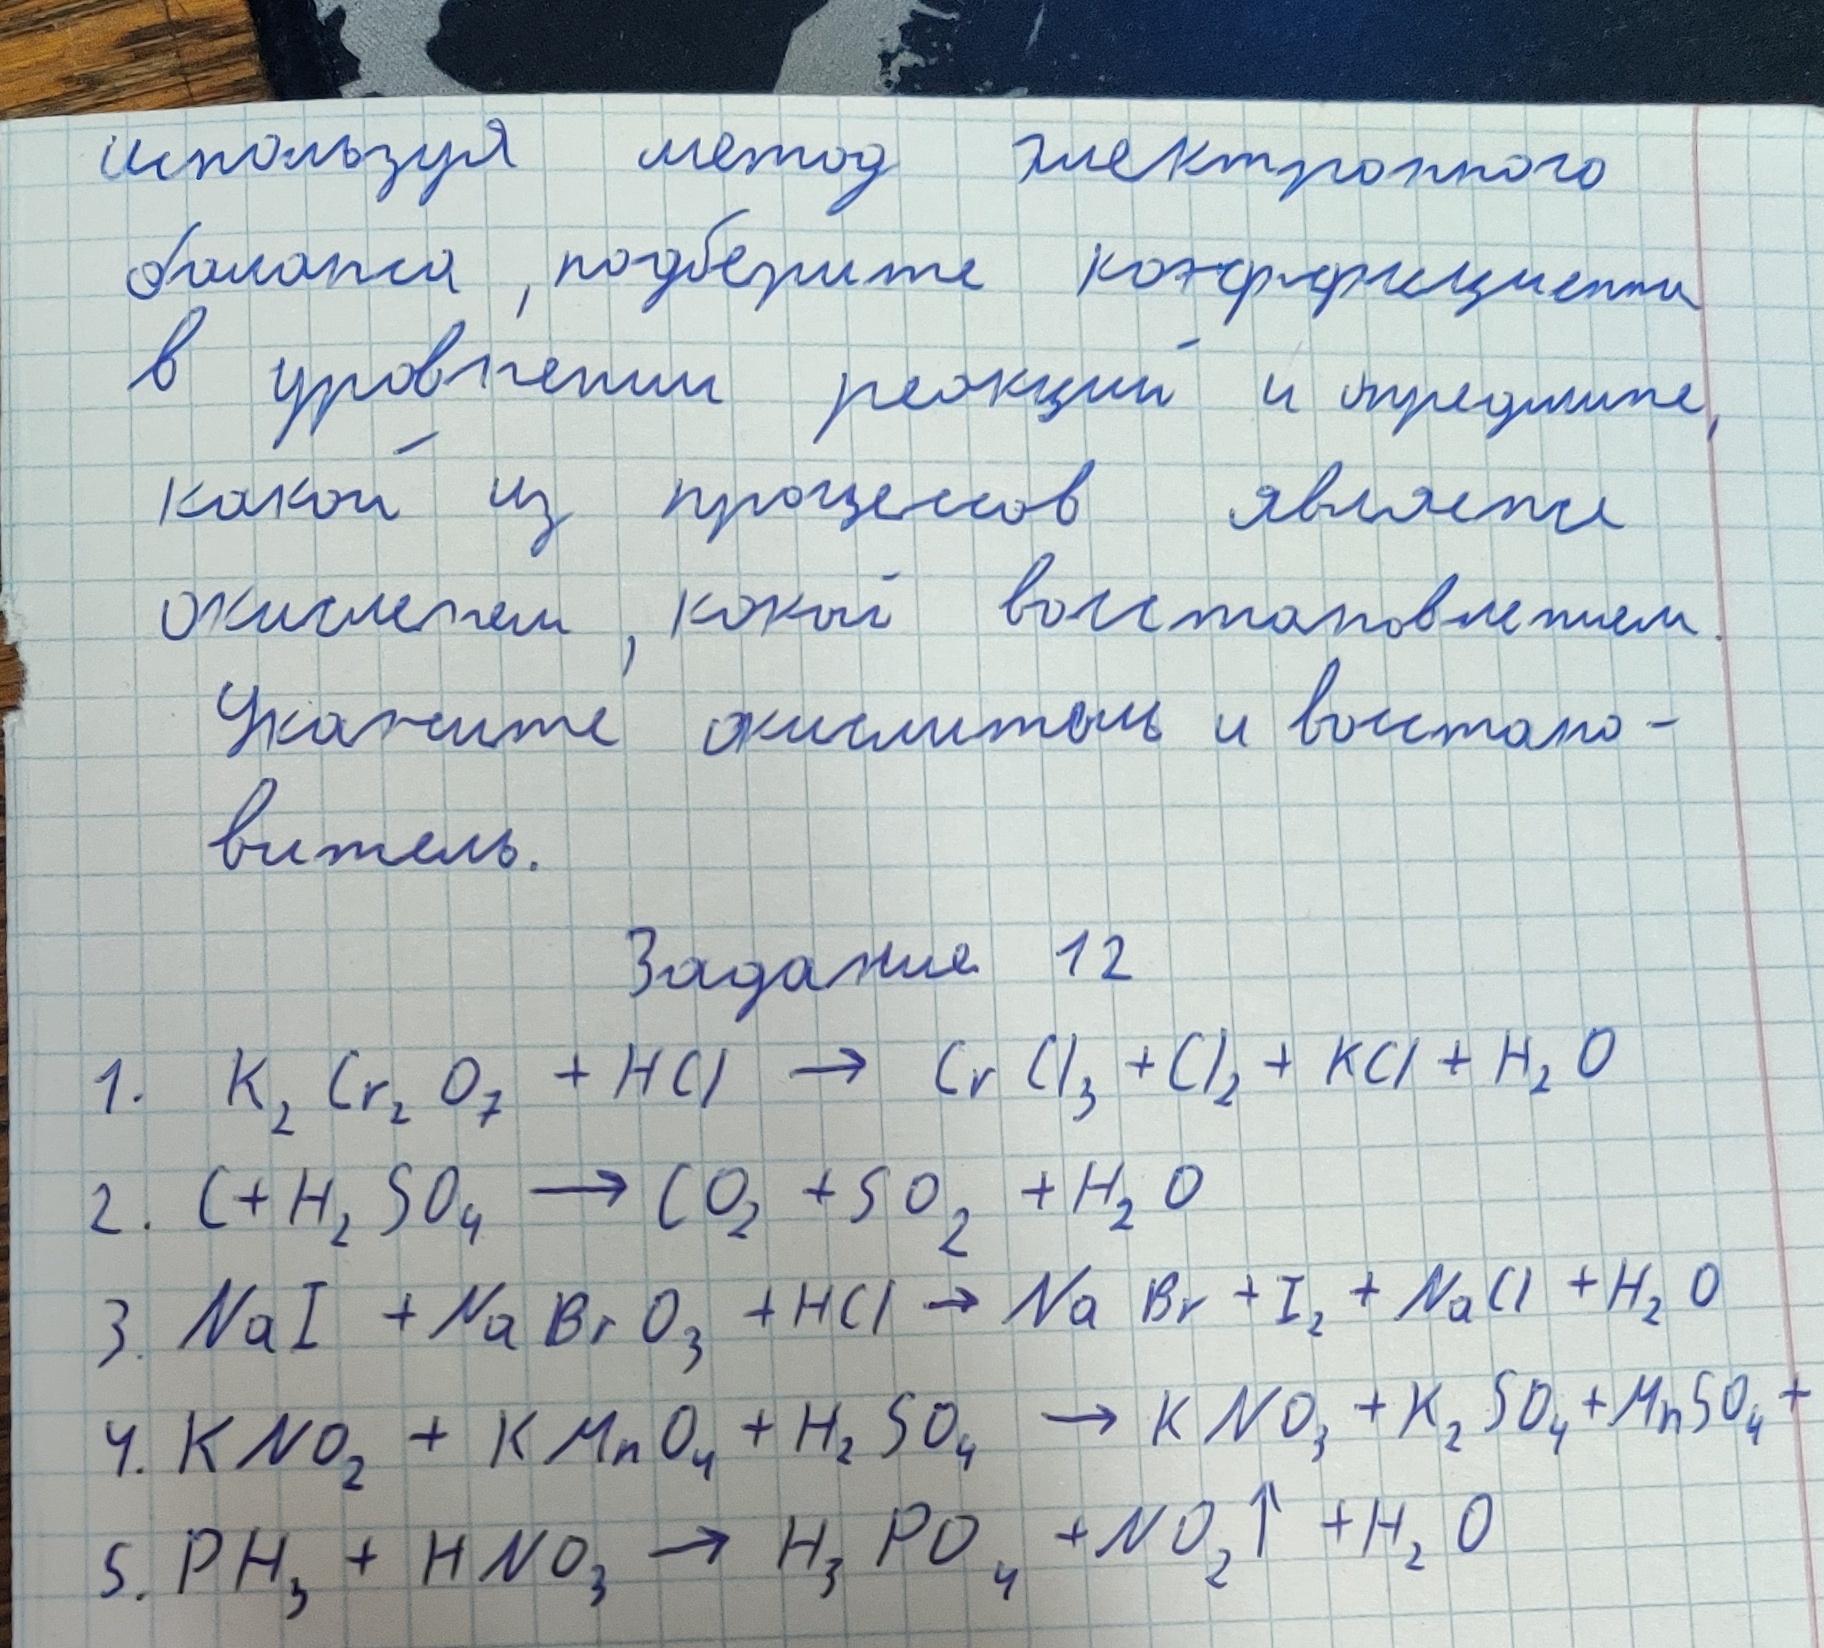 используя метод электронного
баланса, подберите коэффициенты
в уровнении реакций и определите,
какой из процессов является
окислением, какой восстановлением.
Укажите окислитель и восстано-
витель.
Задание 12
1. K₂Cr₂O₇ + HCl → CrCl₃ + Cl₂ + KCl + H₂O
2. C + H₂SO₄ → CO₂ + SO₂ + H₂O
3. NaI + NaBrO₃ + HCl → NaBr + I₂ + NaCl + H₂O
4. KNO₂ + KMnO₄ + H₂SO₄ → KNO₃ + K₂SO₄ + MnSO₄ +
5. PH₃ + HNO₃ → H₃PO₄ + NO₂↑ + H₂O